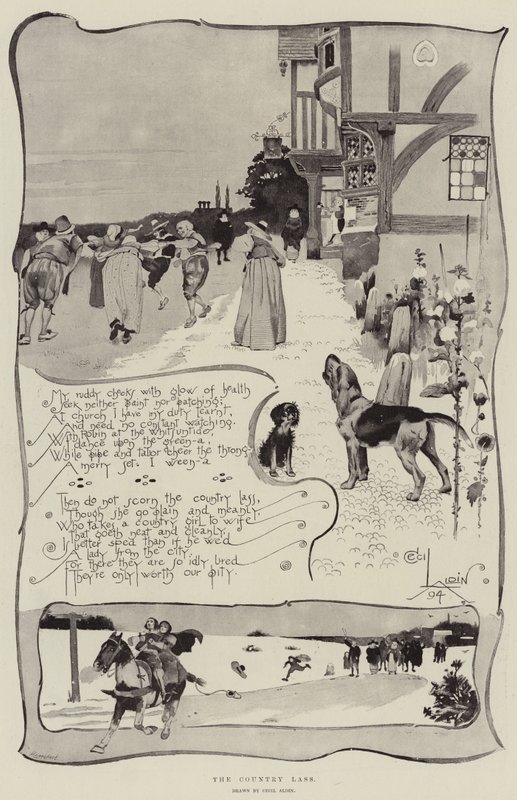 My ruddy cheeks with glow of health
Seek neither paint nor patching;
At church I have my duty learnt,
And need no constant watching.
With Robin at the Whitsuntide,
I dance upon the green-a,
While pipe and tabor cheer the throng
A merry set. I ween-a
Then do not scorn the country lass,
Though she go plain and meanly,
Who takes a country girl to wife
That goeth neat and cleanly,
Is better sped than if he wed
A lady from the city,
For there they are so idly bred
They're only worth our pity.
CECIL
ALDIN
94
THE COUNTRY LASS.
DRAWN BY CECIL ALDIN.